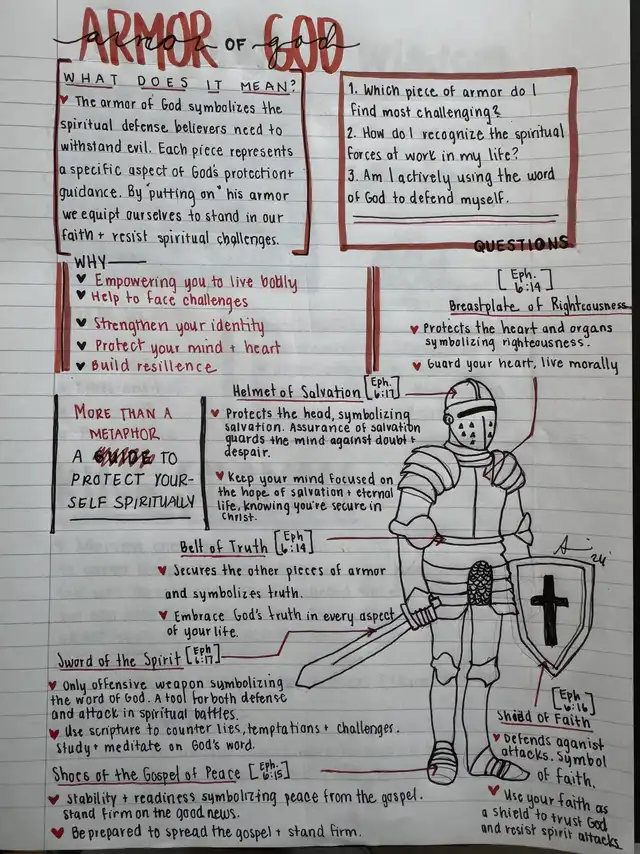 ARMOR OF GOD
armor god
WHAT DOES IT MEAN?
The armor of God symbolizes the
spiritual defense believers need to
withstand evil. Each piece represents
a specific aspect of God's protection +
guidance. By "putting on" his armor
we equipt ourselves to stand in our
faith + resist spiritual challenges.
1. Which piece of armor do I
find most challenging?
2. How do I recognize the spiritual
forces at work in my life?
3. Am I actively using the word
of God to defend myself.
QUESTIONS
WHY
Empowering you to live boldly
Help to face challenges
Strengthen your identity
Protect your mind + heart
Build resillence
[Eph. 6:14]
Breastplate of Righteousness
Protects the heart and organs
symbolizing righteousness.
Guard your heart, live morally
MORE THAN A
METAPHOR
A TO
PROTECT YOUR-
SELF SPIRITUALLY
Helmet of Salvation [Eph. 6:17]
Protects the head, symbolizing
salvation. Assurance of salvation
guards the mind against doubt +
despair.
Keep your mind focused on
the hope of salvation + eternal
life, knowing you're secure in
Christ.
Belt of Truth [Eph 6:14]
Secures the other pieces of armor
and symbolizes truth.
Embrace God's truth in every aspect
of your life.
Sword of the Spirit [Eph 6:17]
Only offensive weapon symbolizing
the word of God. A tool for both defense
and attack in spiritual battles.
Use scripture to counter lies, temptations + challenges.
Study + meditate on God's word.
Shoes of the Gospel of Peace [Eph. 6:15]
Stability + readiness symbolizing peace from the gospel.
Stand firm on the good news.
Be prepared to spread the gospel + stand firm.
24'
[Eph 6:16]
Shield of Faith
Defends aganist
attacks. Symbol
of faith.
Use your faith as
a shield to trust God
and resist spirit attacks